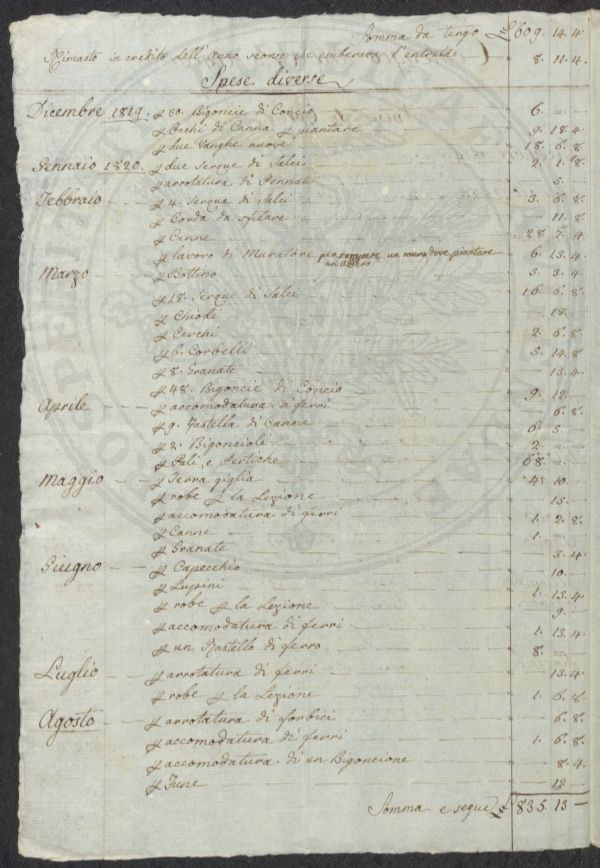 Somma da tergo L. 609. 14. 4
Rimasto in credito dell'anno scorso che esuberava l'entrata 8. 11. 4
Spese diverse
Dicembre 1819. p 80. Bigoncie di Concio 6. — —
p Occhi di Canna p piantare 9. 18. 4
p due Vanghe nuove 18. 6. 8
Gennaio 1820. p due Serque di Salci 2. 1. 8
p arrotatura di Pennati — 5. —
Febbraio p 4. Serque di Salci 3. 6. 8
p Corda da sfilare — 11. 8
p Canne 28. 7. 4
p lavoro di Muratore per rompere un muro dove piantare 6. 13. 4
Marzo p Bottino 5. 3. 4
p 18. Serque di Salci 16. 6. 8
p Chiodi — 18. —
p Cerchi 2. 6. 8
p 6. Corbelli 5. 14. 8
p 8. Granate — 13. 4
p 48. Bigoncie di Concio 9. 12. —
Aprile p accomodatura di ferri — 6. 8
p 9. Rastella di Canne 6. 5. —
p 2. Bigoncioli 2. — —
p Pali, e Pertiche 68. — —
Maggio p Terra giglia 4. 10. —
p robe p la Lezione — 15. —
p accomodatura di ferri 1. 2. 8
p Canne 1. — —
p Granate — 3. 4
Giugno p Capecchio — 10. —
p Lupini 1. 13. 4
p robe p la Lezione — 9. —
p accomodatura di ferri 1. 13. 4
p un Rastello di ferro 8. — —
Luglio p arrotatura di ferri — 13. 4
p robe p la Lezione 1. 6. 8
Agosto p arrotatura di forbici — 6. 8
p accomodatura di ferri 1. 6. 8
p accomodatura di un Bigoncione — 8. 4
p Fune — 12 —
Somma e segue L. 835. 13 —